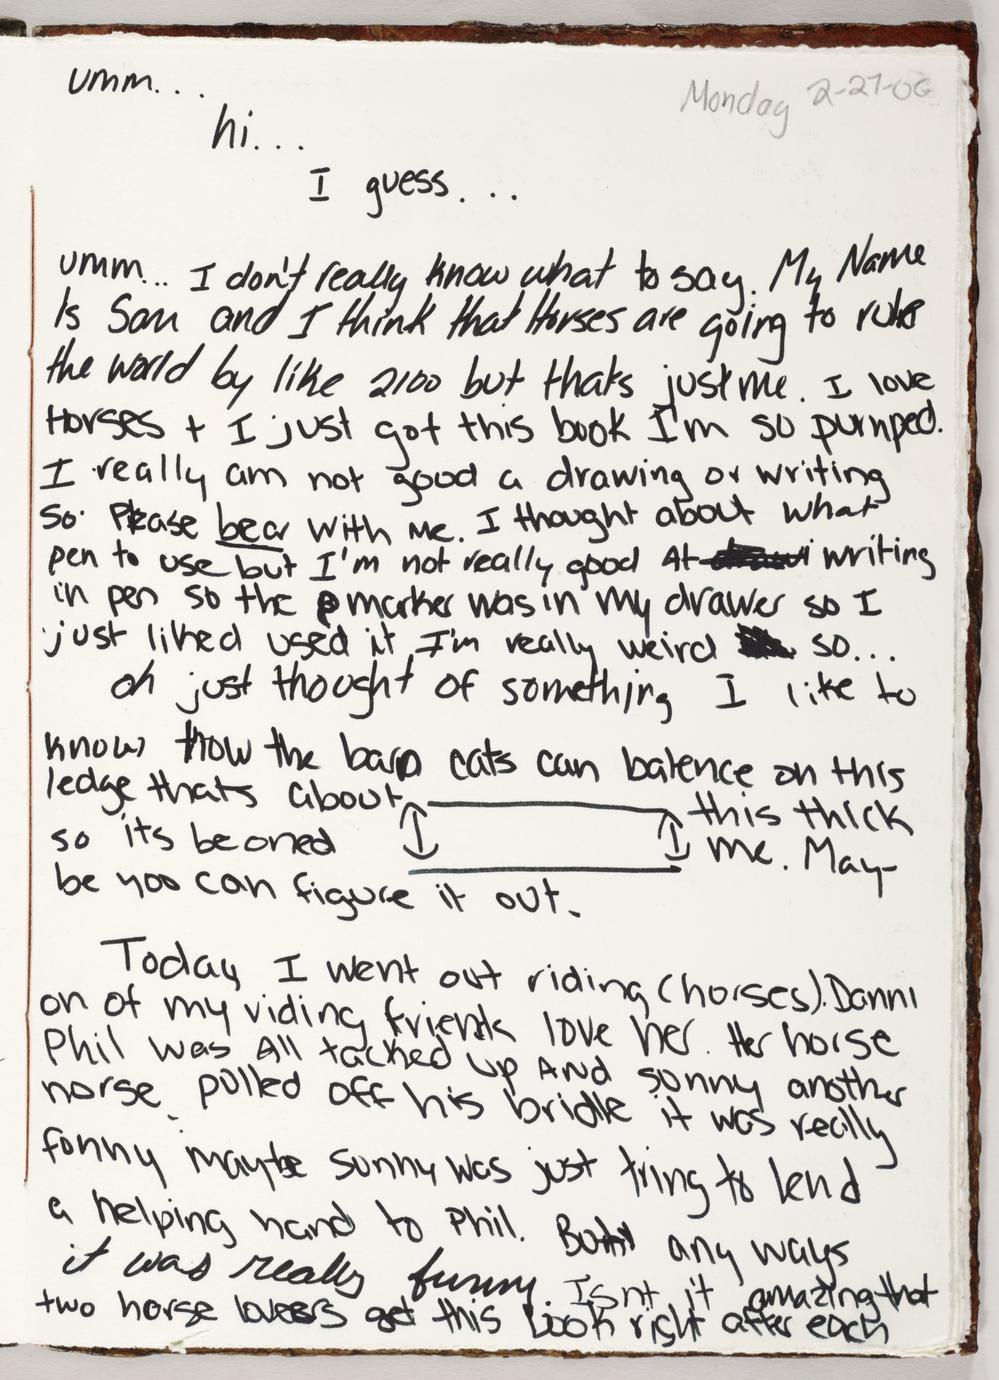 umm...
Monday 2-27-06
hi...
I guess...
umm... I don't really know what to say. My Name
Is Sam and I think that Horses are going to rule
the world by like 2100 but thats just me. I love
Horses + I just got this book I'm so pumped.
I really am not good a drawing or writing
so Please bear with me. I thought about what
pen to use but I'm not really good At writing
in pen so the marker was in my drawer so I
just liked used it I'm really weird so...
oh just thought of something I like to
know how the barn cats can balence on this
ledge thats about this thick
so its beoned me. May-
be you can figure it out.
Today I went out riding (horses). Danni
on of my riding friends love her. Her horse
Phil was All tacked up And sonny another
horse pulled off his bridle it was really
fonny maybe sunny was just tring to lend
a helping hand to Phil. But any ways
it was really funny. Isnt it amazing that
two horse lovers get this book right after each